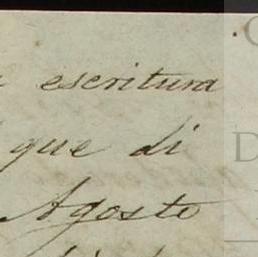 escritura
que di
Agosto